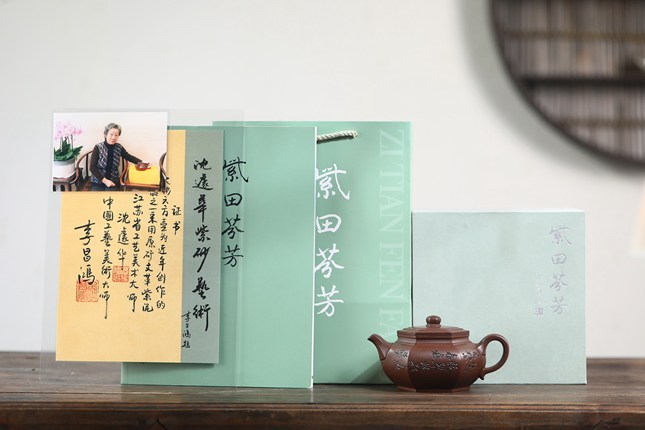 沈遽華紫砂藝術
李昌鸿题
证书
六方壶为近年创作的
品之一采用原矿文革紫泥
江苏省工艺美术大师
沈遽华
中国工艺美术大师
李昌鴻
紫田芬芳
紫田芬芳
ZI TIAN FEN F
紫田芬芳